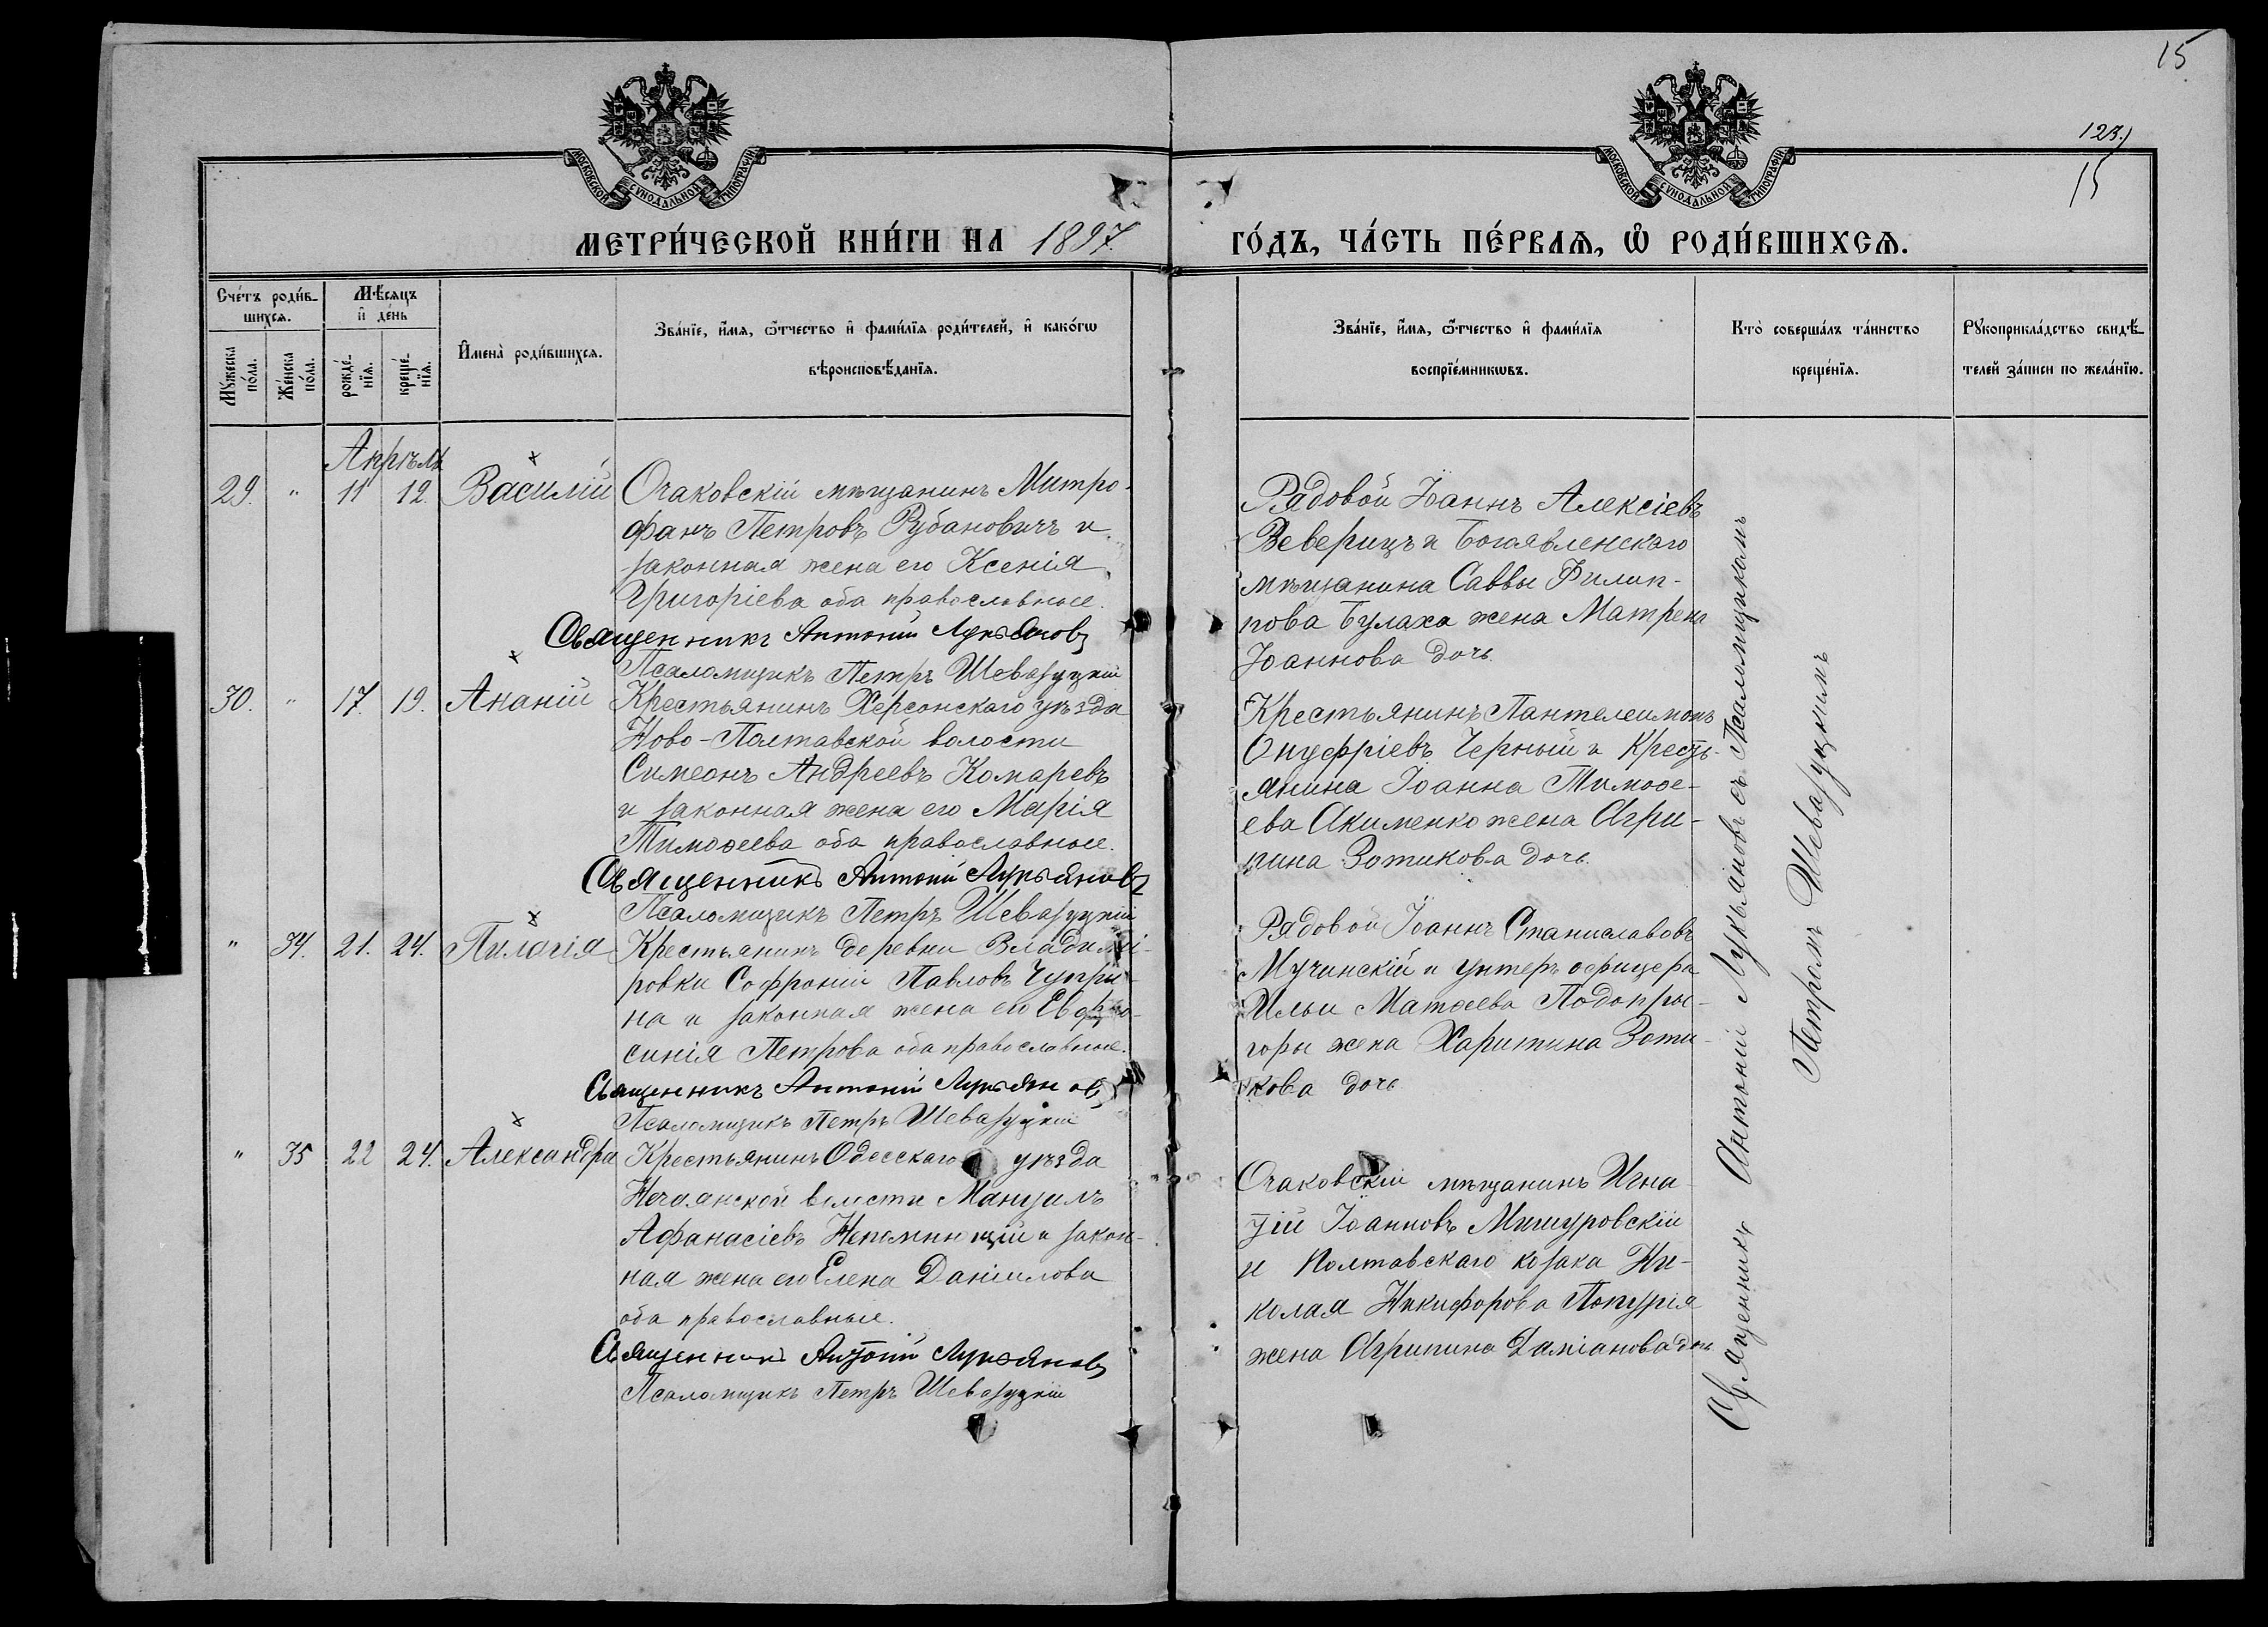 15
123.)
15
МОСКОВСКОЙ СѴНОДАЛЬНОЙ ТИПОГРАФІИ
МОСКОВСКОЙ СѴНОДАЛЬНОЙ ТИПОГРАФІИ
МЕТРИ́ЧЕСКОЙ КНИ́ГИ НА 1897.
ГО́ДЪ, ЧА́СТЬ ПЕ́РВАѦ, Ѽ РОДИ́ВШИХСѦ.
Сче́тъ роди́в-
шихсѧ.
Мꙋ́жеска по́ла.
Же́нска по́ла.
Мѣ́сѧцъ и҆ де́нь
рожде́-нїѧ.
креще́-нїѧ.
И҆мена̀ роди́вшихсѧ.
Зва́нїе, и҆́мѧ, ѻ҆́тчество и҆ фами́лїѧ роди́телей, и҆ како́гѡ
вѣроисповѣ́данїѧ.
Зва́нїе, и҆́мѧ, ѻ҆́тчество и҆ фами́лїѧ
воспрїе́мникѡвъ.
Кто̀ соверша́лъ та́инство
креще́нїѧ.
Рꙋкоприкла́дство свидѣ́-
телей за́писи по жела́нїю.
Апрѣль
29. " 11 12. Василій Очаковскій мѣщанинъ Митро-
фанъ Петровъ Рубановичъ и
законная жена его Ксенія
Григоріева оба православные.
Священникъ Антоній Лукьяновъ
Псаломщикъ Петръ Шевазуцкій
Рядовой Іоаннъ Алексіевъ
Веверицъ и Богоявленскаго
мѣщанина Саввы Филип-
пова Булаха жена Матрена
Іоаннова дочь.
30. " 17. 19. Ананій Крестьянинъ Херсонскаго уѣзда
Ново-Полтавской волости
Симеонъ Андреевъ Комаревъ
и законная жена его Марія
Тимоѳеева оба православные.
Священникъ Антоній Лукьяновъ
Псаломщикъ Петръ Шевазуцкій
Крестьянинъ Пантелеимонъ
Онуфріевъ Черный и Кресть-
янина Іоанна Тимоѳе-
ева Акименко жена Агри-
пина Зотикова дочь.
" 34. 21. 24. Пилагія Крестьянинъ деревни Владимі-
ровки Софроній Павловъ Чупри-
на и законная жена его Евфро-
синія Петрова оба православные.
Священникъ Антоній Лукьяновъ
Псаломщикъ Петръ Шевазуцкій
Рядовой Іоаннъ Станиславовъ
Мучинскій и унтеръ офицера
Ильи Матѳеева Подопры-
горы жена Харитина Зоти-
кова дочь
" 35 22 24. Александра Крестьянинъ Одесскаго уѣзда
Нечаянской волости Мануилъ
Афанасіевъ Непомнющій и закон-
ная жена его Елена Даніилова
оба православные.
Священникъ Антоній Лукьяновъ
Псаломщикъ Петръ Шевазуцкій
Очаковскій мѣщанинъ Игна-
тій Іоанновъ Мишуровскій
и Полтавскаго козака Ни-
колая Никифорова
жена Агрипина Даміанова дочь
Священникъ Антоній Лукьяновъ съ Псаломщикомъ
Петромъ Шевазуцкимъ